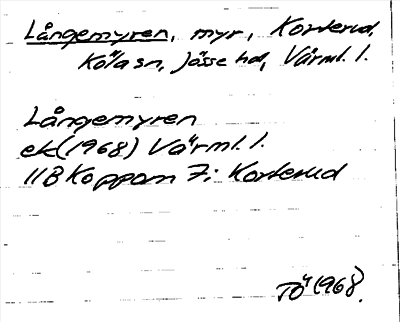 Långemyren, myr, Korterud,
Köla sn, Jösse hd, Värml. l.
Långemyren
ek (1968) Värml. l.
11B Koppom 7i Korterud
TÖ 1968.